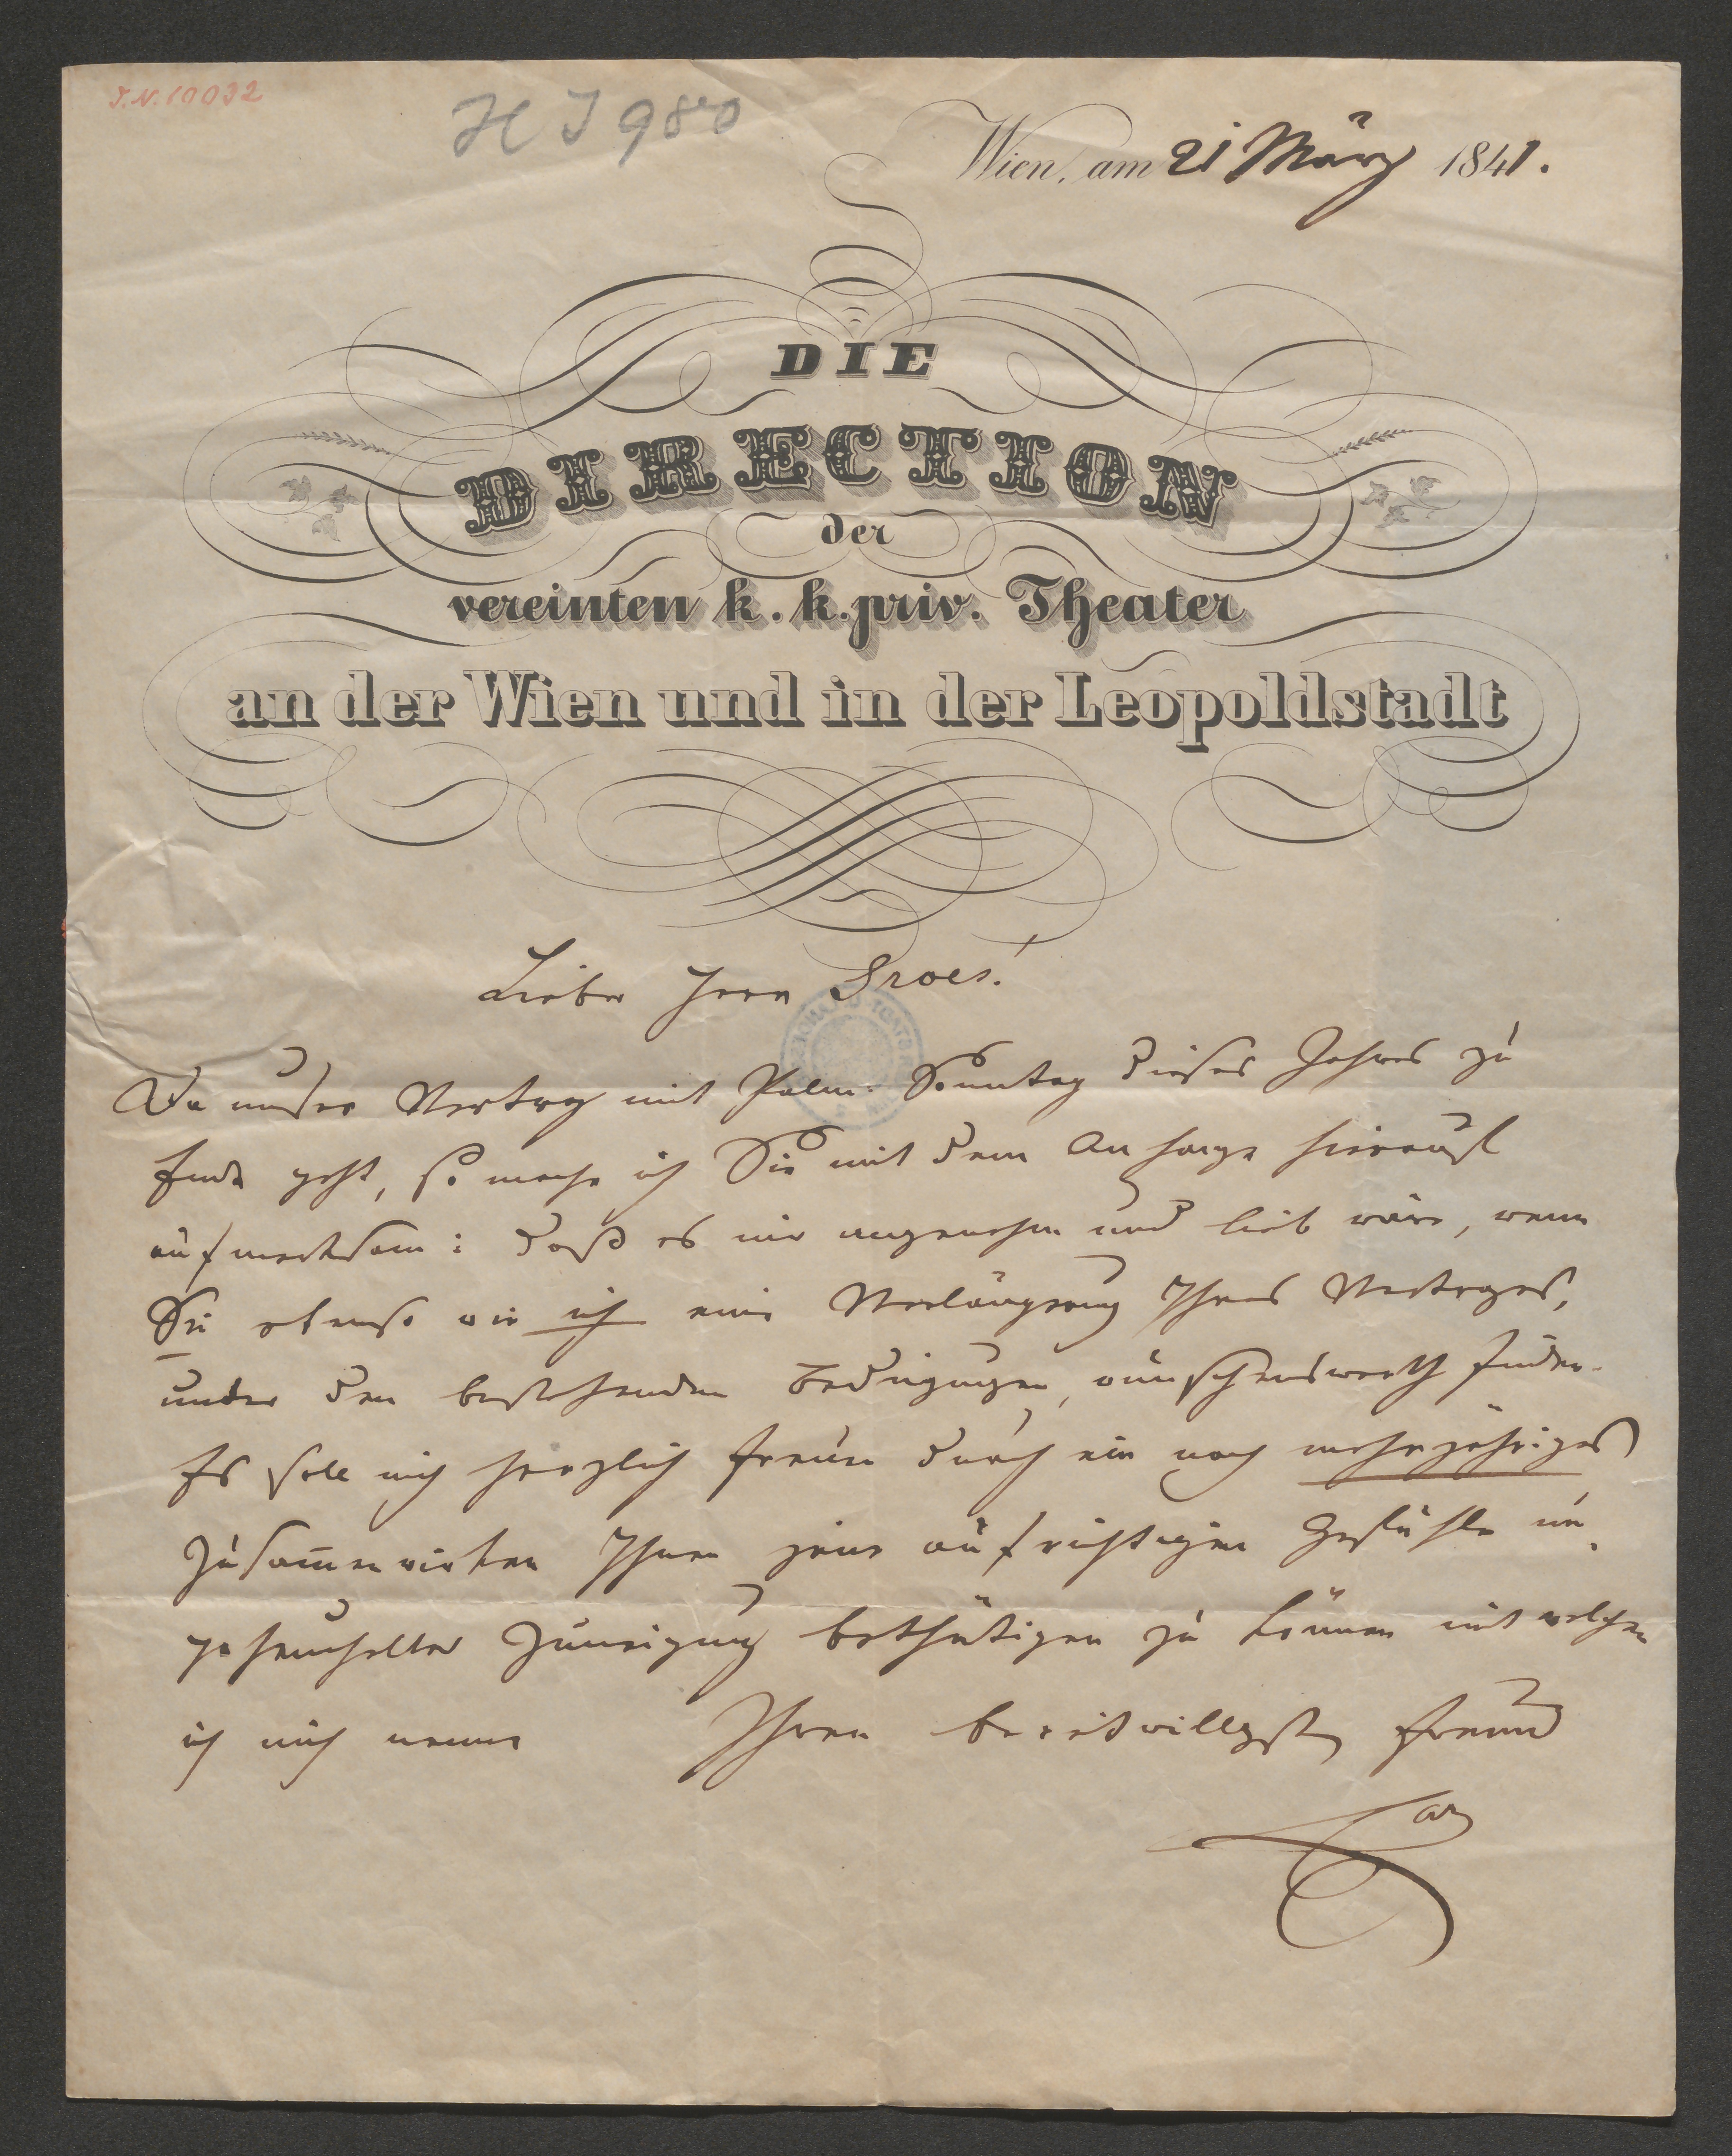 J.N. 10032
H J 980
Wien, am 21 März 1841.
DIE
DIRECTION
der
vereinten k. k. priv. Theater
an der Wien und in der Leopoldstadt
Lieber Herr Grois!
Da unser Vertrag mit Palm-Sonntag dieses Jahres zu
Ende geht, so mache ich Sie mit dem Anhange hierauf
aufmerksam: daß es mir angenehm und lieb wäre, wenn
Sie ebenso wie ich eine Verlängerung Ihres Vertrages,
unter den bestehenden Bedingungen, wünschenswerth finden.
Es soll mich herzlich freuen durch ein noch mehrjähriges
Zusam̅enwirken Ihnen jene aufrichtigen Gefühle un
geheuchelter Zuneigung bethätigen zu können mit welchen
ich mich nenne Ihren bereitwilligsten Freund